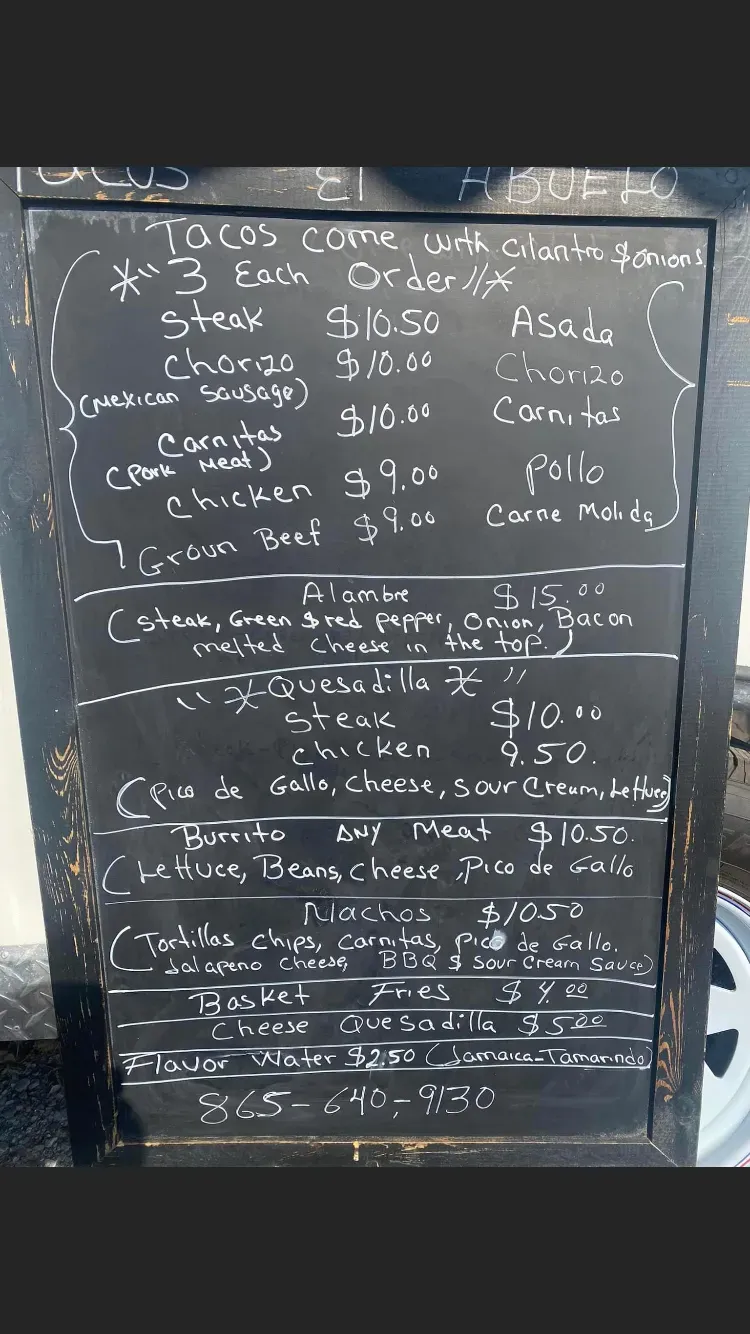 TACOS El ABUELO
Tacos come with cilantro $ onions
*"3 Each Order"*
Steak $10.50 Asada
Chorizo $10.00 Chorizo
(Mexican Sausage)
Carnitas $10.00 Carnitas
(Pork Meat)
Chicken $9.00 Pollo
Groun Beef $9.00 Carne Molida
Alambre $15.00
(steak, Green $ red pepper, Onion, Bacon
melted cheese in the top.)
"*Quesadilla*"
Steak $10.00
Chicken 9.50.
(Pico de Gallo, Cheese, Sour Cream, Lettuce)
Burrito ANY Meat $10.50.
(Lettuce, Beans, cheese, Pico de Gallo
Nachos $10.50
(Tortillas chips, carnitas, pico de Gallo.
Jalapeno cheese, BBQ $ Sour Cream Sauce)
Basket Fries $4.00
Cheese Quesadilla $5.00
Flavor Water $2.50 (Jamaica-Tamarindo)
865-640-9130